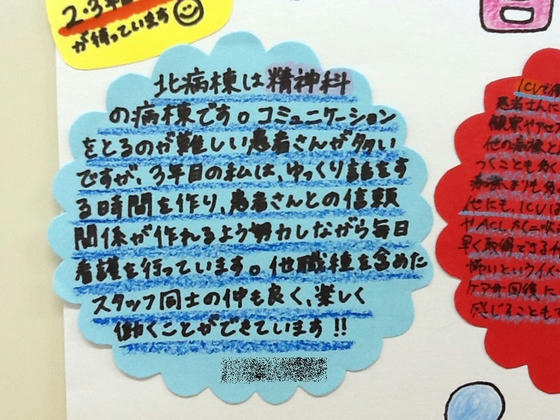 2.3年
が待っています
北病棟は精神科
の病棟です。コミュニケーション
をとるのが難しい患者さんが多い
ですが、3年目の私は、ゆっくり話をす
る時間を作り、患者さんとの信頼
関係が作れるよう努力しながら毎日
看護を行っています。他職種を含めた
スタッフ同士の仲も良く、楽しく
働くことができています!!
ICUで
患者さん
他の病棟と
つくことも
他にも、ICUは
早く取得できる
怖いというイ
ケアが回復に
感じることも